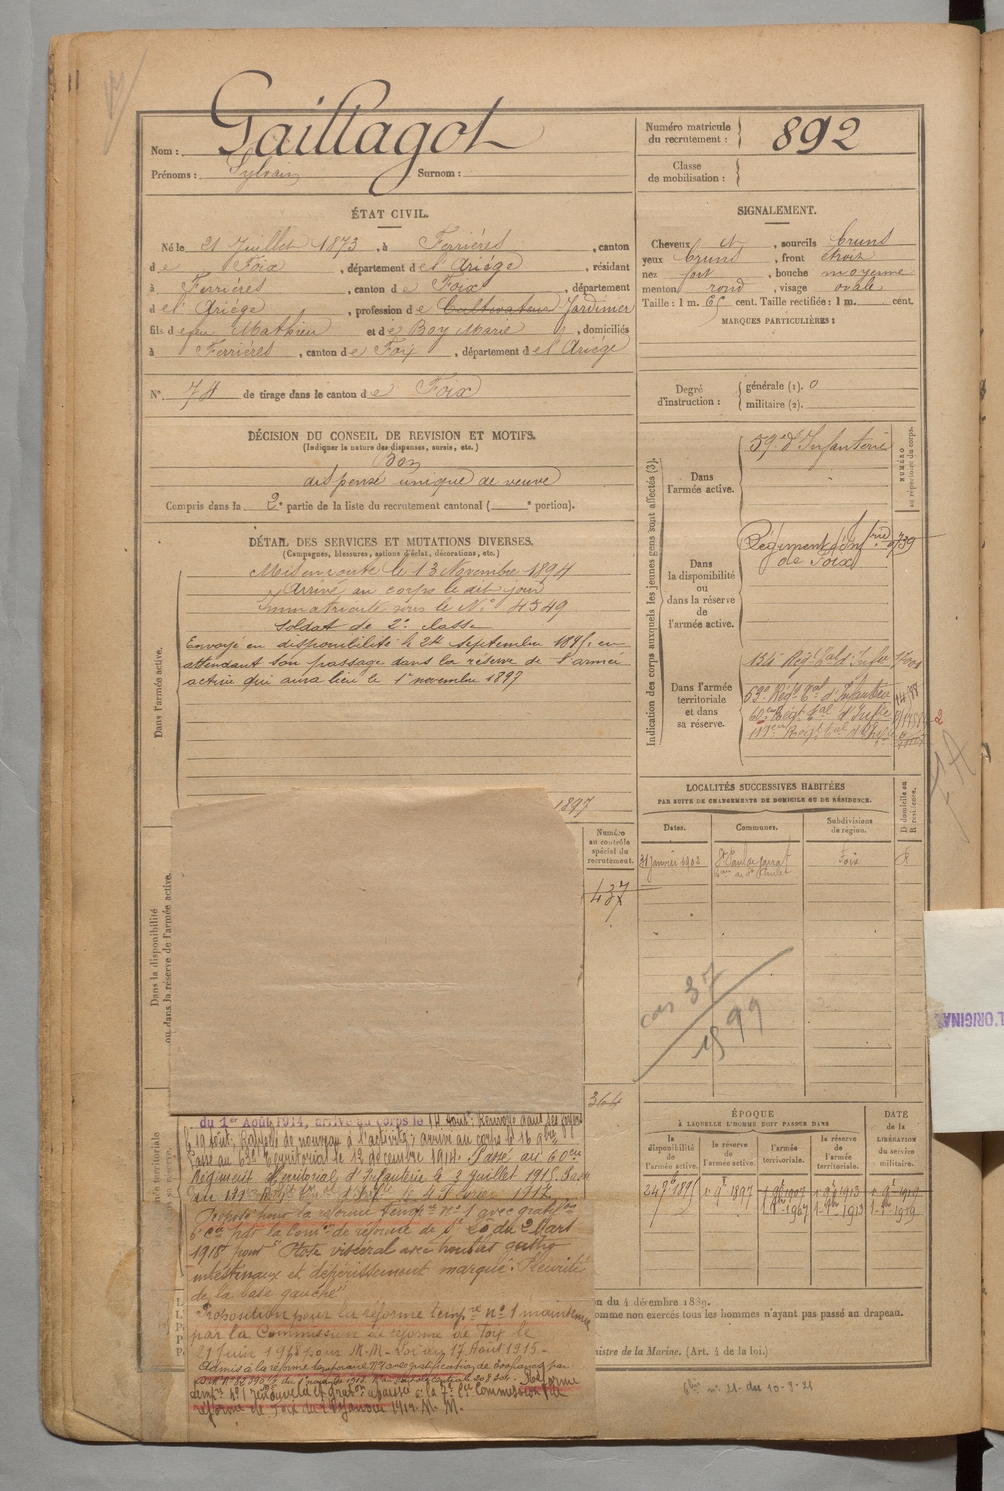 Nom : Gaillagot
Prénoms : Sylvain Surnom :
Numéro matricule du recrutement : 892
Classe de mobilisation :
ÉTAT CIVIL.
Né le 21 Juillet 1873, à Ferrières, canton
de Foix, département de l'Ariège, résidant
à Ferrières, canton de Foix, département
de l'Ariège, profession de Cultivateur Jardinier
fils de feu Mathieu et de Boy Marie, domiciliés
à Ferrières, canton de Foix, département de l'Ariège
N° 74 de tirage dans le canton de Foix
SIGNALEMENT.
Cheveux et, sourcils bruns
yeux bruns, front étroit
nez fort, bouche moyenne
menton rond, visage ovale
Taille : 1 m. 65 cent. Taille rectifiée : 1 m. cent.
MARQUES PARTICULIÈRES :
Degré d'instruction : générale (1). 0
militaire (2).
DÉCISION DU CONSEIL DE REVISION ET MOTIFS.
(Indiquer la nature des dispenses, sursis, etc.)
Bon
dispensé unique de veuve
Compris dans la 2e partie de la liste du recrutement cantonal ( e portion).
DÉTAIL DES SERVICES ET MUTATIONS DIVERSES.
(Campagnes, blessures, actions d'éclat, décorations, etc.)
Dans l'armée active.
Mis en route le 13 Novembre 1894
Arrivé au corps le dit jour
Immatriculé sous le N° 4349
Soldat de 2e classe
Envoyé en disponibilité le 24 septembre 1895, en
attendant son passage dans la réserve de l'armée
active qui aura lieu le 1er novembre 1897
1897
Dans la disponibilité ou dans la réserve de l'armée active.
Numéro au contrôle spécial du recrutement.
437
364
du 1er Août 1914, arrivé au corps le 14 Août. Renvoyé dans ses foyers
le 19 août. Rappelé de nouveau à l'activité, arrivé au corps le 16 9bre
Passé au 63e Territorial le 12 décembre 1914. Passé au 60ème
Régiment Territorial d'Infanterie le 3 juillet 1915. Passé
Proposé pour la réforme temp. n° 1 avec gratif.
par la Comon de réforme de du 2 Mars
1918 pour "Ptose viscéral avec troubles gastro
intestinaux et dépérissement marqué. Pleurite
de la base gauche"
Proposition pour la réforme temp.re n° 1 maintenue
par la Commission de réforme de Foix le
21 Juin 1918 pour M.M. Loi du 17 Août 1915.
Admis à la réforme temporaire N°1 avec gratification de
Réforme
temp.re n°1 renouvelée
réforme de Foix du Janvier 1919. M.M.
Indication des corps auxquels les jeunes gens sont affectés (3).
NUMÉRO au répertoire du corps.
Dans l'armée active.
59e d'Infanterie
Dans la disponibilité ou dans la réserve de l'armée active.
Régiment d'Inf.rie de Foix
Dans l'armée territoriale et dans sa réserve.
134e Régt tal d'Infie
59e Régt tal d'Infanterie
60ème Régt tal d'Infie
LOCALITÉS SUCCESSIVES HABITÉES
PAR SUITE DE CHANGEMENTS DE DOMICILE OU DE RÉSIDENCE.
Dates. Communes. Subdivisions de région. D domicile ou R résidence.
31 janvier 1902 St Paul de Jarrat Foix R
cas 37
1899
ÉPOQUE
À LAQUELLE L'HOMME DOIT PASSER DANS
la disponibilité de l'armée active. la réserve de l'armée active. l'armée territoriale. la réserve de l'armée territoriale.
DATE de la LIBÉRATION du service militaire.
24 7bre 1895 1er 9bre 1897 1 9bre 1907 1 9bre 1913 1er 9bre 1919
n du 4 décembre 1889.
omme non exercés tous les hommes n'ayant pas passé au drapeau.
inistre de la Marine. (Art. 4 de la loi.)
L'ORIGINA